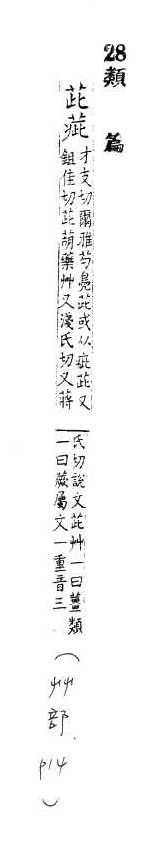 28
類
篇
茈茈才支切爾雅芍鳧茈或从疵茈又
鉏佳切茈葫藥艸又淺氏切又蔣
氏切說文茈艸一曰薑類
一曰蕨屬文一重音三
(艸部. P14)